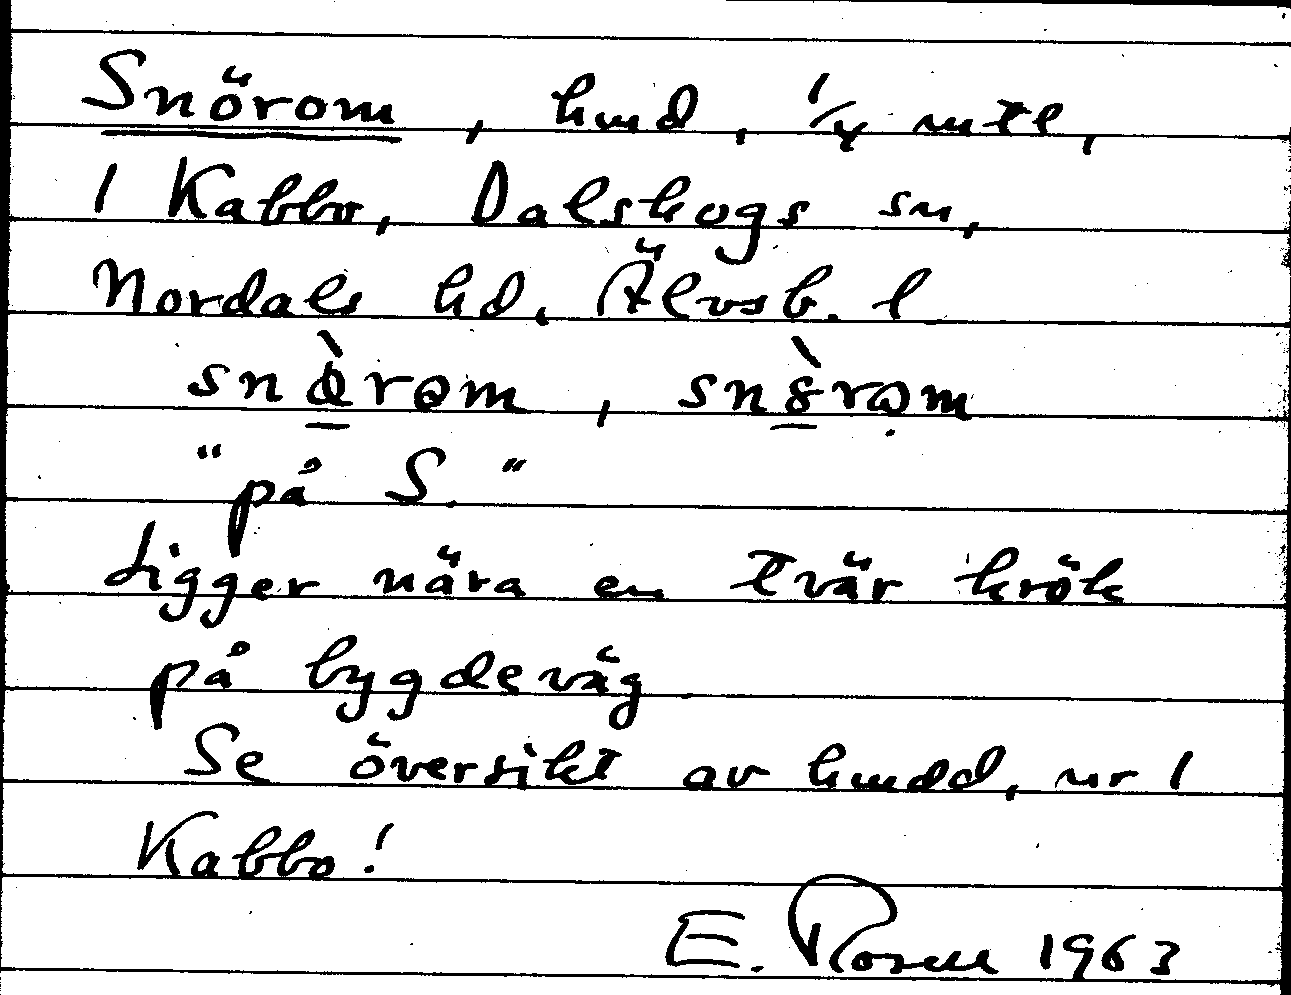 Snörom, hmd, 1/4 mtl,
1 Kabbo, Dalskogs sn,
Nordals hd. Älvsb. l
"på S."
Ligger nära en tvär krök
på bygdeväg
Se översikt av hmdd, nr 1
Kabbo!
E. Rosell 1963